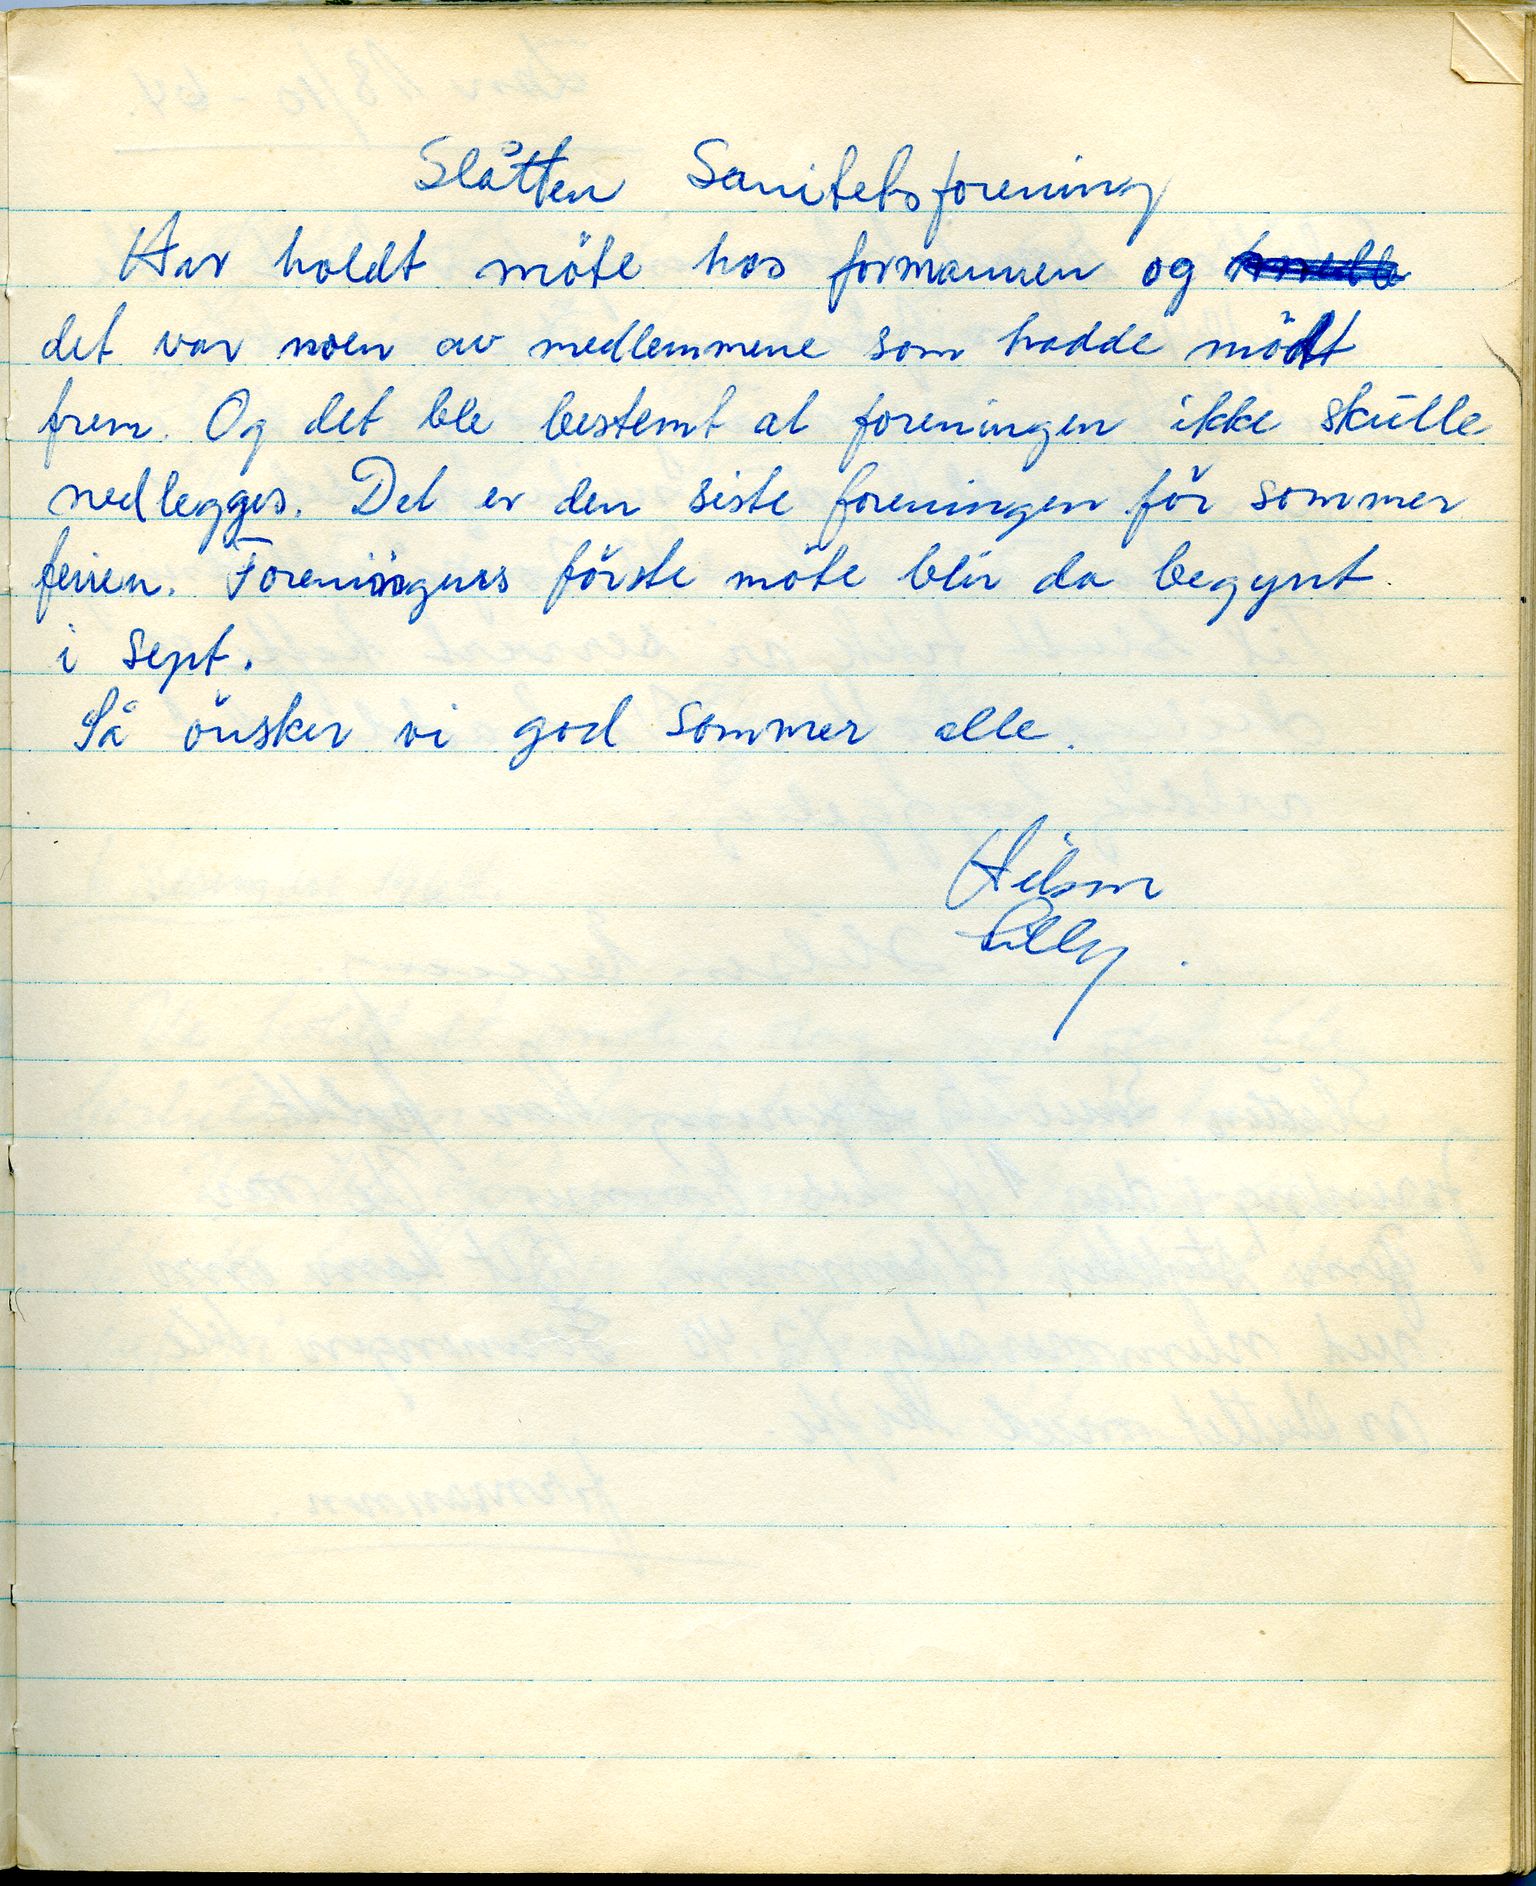 Slåtten Sanitetsforening
Har holdt möte hos formannen og
det var noen av medlemmene som hadde mödt
frem. Og det ble bestemt at foreningen ikke skulle
nedlegges. Det er den siste foreningen för sommer
ferien. Foreningens förste möte blir da begynt
i sept.
Så önsker vi god sommer alle.
Hilsen
Lilly.